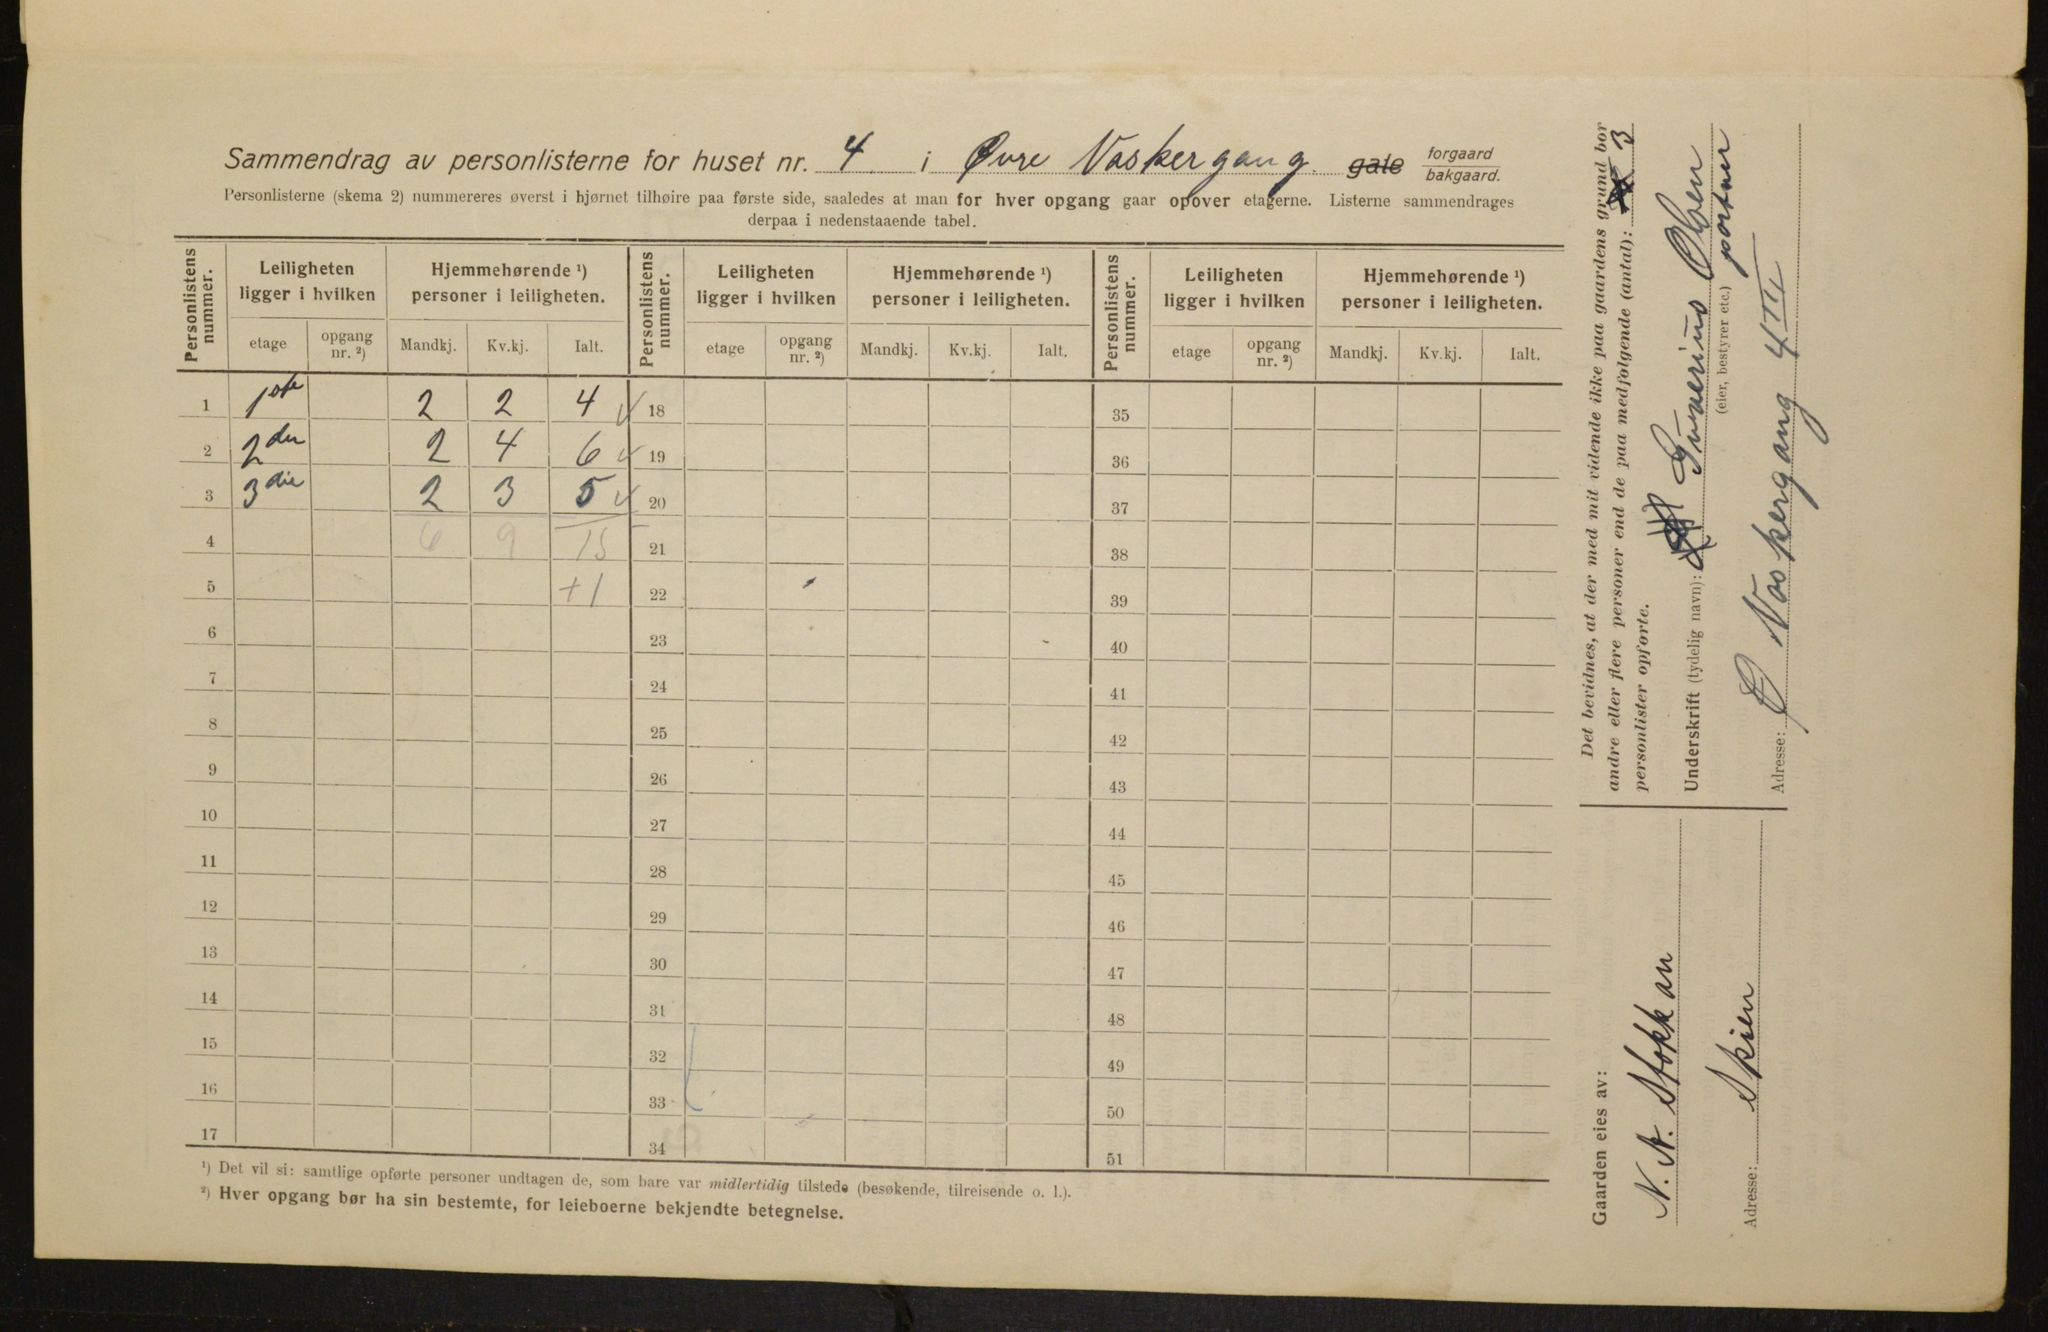 Sammendrag av personlisterne for huset nr. 4 i Øvre Vaskergang gate forgaard bakgaard.
Personlisterne (skema 2) nummereres øverst i hjørnet tilhøire paa første side, saaledes at man for hver opgang gaar opover etagerne. Listerne sammendrages
derpaa i nedenstaaende tabel.
Personlistens nummer. Leiligheten ligger i hvilken Hjemmehørende ¹) personer i leiligheten. Personlistens nummer. Leiligheten ligger i hvilken Hjemmehørende ¹) personer i leiligheten. Personlistens nummer. Leiligheten ligger i hvilken Hjemmehørende ¹) personer i leiligheten.
etage opgang nr. ²) Mandkj. Kv.kj. Ialt. etage opgang nr. ²) Mandkj. Kv.kj. Ialt. etage opgang nr. ²) Mandkj. Kv.kj. Ialt.
1 1ste 2 2 4 18 35
2 2den 2 4 6 19 36
3 3die 2 3 5 20 37
4 6 9 15 21 38
5 +1 22 39
6 23 40
7 24 41
8 25 42
9 26 43
10 27 44
11 28 45
12 29 46
13 30 47
14 31 48
15 32 49
16 33 50
17 34 51
¹) Det vil si: samtlige opførte personer undtagen de, som bare var midlertidig tilstede (besøkende, tilreisende o. l.).
²) Hver opgang bør ha sin bestemte, for leieboerne bekjendte betegnelse.
Det bevidnes, at der med mit vidende ikke paa gaardens grund bor
andre eller flere personer end de paa medfølgende (antal): 3
personlister opførte.
Underskrift (tydelig navn): Olsen
(eier, bestyrer etc.) portner
Adresse: Ø Vaskergang 4
Gaarden eies av:
N. A. Stokkan
Adresse: Skien